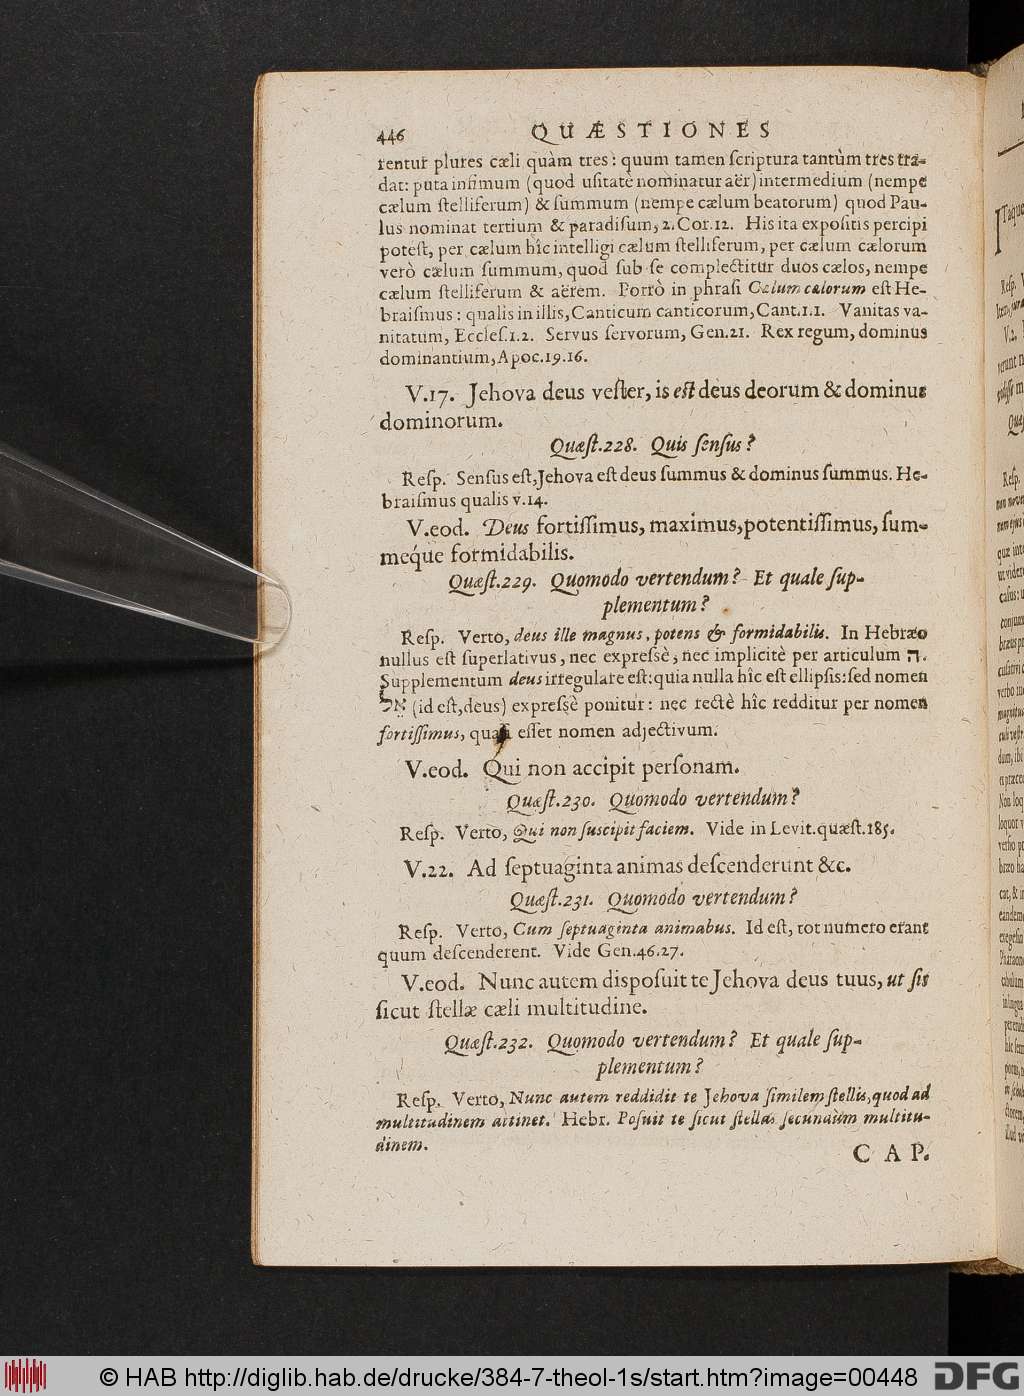 446 QUÆSTIONES
rentur plures cæli quàm tres: quum tamen ſcriptura tantùm tres tra-
dat: puta infimum (quod uſitatè nominatur aër) intermedium (nempe
cælum ſtelliferum) & ſummum (nempe cælum beatorum) quod Pau-
lus nominat tertium & paradiſum, 2. Cor. 12. His ita expoſitis percipi
poteſt, per cælum hîc intelligi cælum ſtelliferum, per cælum cælorum
verò cælum ſummum, quod ſub ſe complectitur duos cælos, nempe
cælum ſtelliferum & aërem. Porrò in phraſi Cælum cælorum eſt He-
braiſmus: qualis in illis, Canticum canticorum, Cant.1.1. Vanitas va-
nitatum, Eccleſ.1.2. Servus ſervorum, Gen.21. Rex regum, dominus
dominantium, Apoc.19.16.
V.17. Jehova deus veſter, is eſt deus deorum & dominus
dominorum.
Quæſt.228. Quis ſenſus?
Reſp. Senſus eſt, Jehova eſt deus ſummus & dominus ſummus. He-
braiſmus qualis v.14.
V.eod. Deus fortiſſimus, maximus, potentiſſimus, ſum-
meq́ue formidabilis.
Quæſt.229. Quomodo vertendum? Et quale ſup-
plementum?
Reſp. Verto, deus ille magnus, potens & formidabilis. In Hebræo
nullus eſt ſuperlativus, nec expreſsè, nec implicitè per articulum ה.
Supplementum deus irregulare eſt: quia nulla hîc eſt ellipſis: ſed nomen
אֵל (id eſt, deus) expreſsè ponitur: nec rectè hîc redditur per nomen
fortiſſimus, quaſi eſſet nomen adjectivum.
V.eod. Qui non accipit perſonam.
Quæſt.230. Quomodo vertendum?
Reſp. Verto, Qui non ſuscipit faciem. Vide in Levit.quæſt.185.
V.22. Ad ſeptuaginta animas deſcenderunt &c.
Quæſt.231. Quomodo vertendum?
Reſp. Verto, Cum ſeptuaginta animabus. Id eſt, tot numero erant
quum deſcenderent. Vide Gen.46.27.
V.eod. Nunc autem diſpoſuit te Jehova deus tuus, ut ſis
ſicut ſtellæ cæli multitudine.
Quæſt.232. Quomodo vertendum? Et quale ſup-
plementum?
Reſp. Verto, Nunc autem reddidit te Jehova ſimilem ſtellis, quod ad
multitudinem attinet. Hebr. Poſuit te ſicut ſtellas ſecundùm multitu-
dinem.
CAP.
© HAB http://diglib.hab.de/drucke/384-7-theol-1s/start.htm?image=00448
DFG